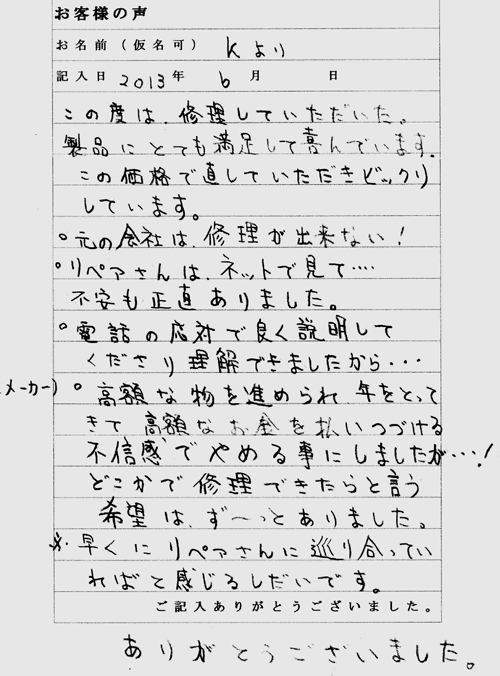 お客様の声
お名前（仮名可） Kより
記入日 2013年 6月 日
この度は、修理していただいた。
製品にとても満足して喜んでいます.
この価格で直していただきビックリ
しています。
○元の会社は、修理が出来ない！
○リペアさんは、ネットで見て‥‥
不安も正直ありました。
○電話の応対で良く説明して
くださり理解できましたから・・・
メーカー）○高額な物を進められ年をとって
きて高額なお金を払いつづける
不信感でやめる事にしましたが・・・！
どこかで修理できたらと言う
希望は、ず～っとありました。
※.早くにリペアさんに巡り合ってい
ればと感じるしだいです。
ご記入ありがとうございました。
ありがとうございました。